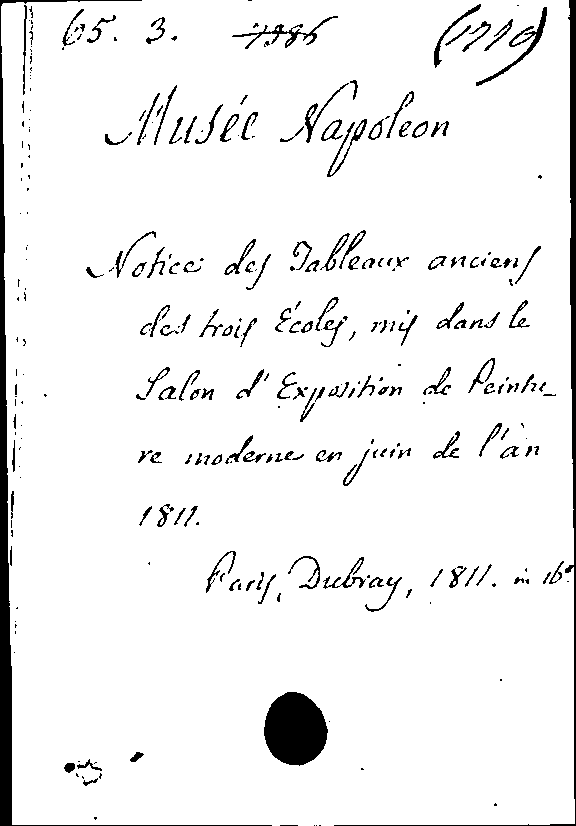 65. 3. 7386 (1710)
Musée Napoleon
Notice des Tableaux anciens
des trois Écoles, mis dans le
Salon d'Exposition de Peintu-
re moderne en juin de l'an
1811.
Paris, Dubray, 1811. in 16°